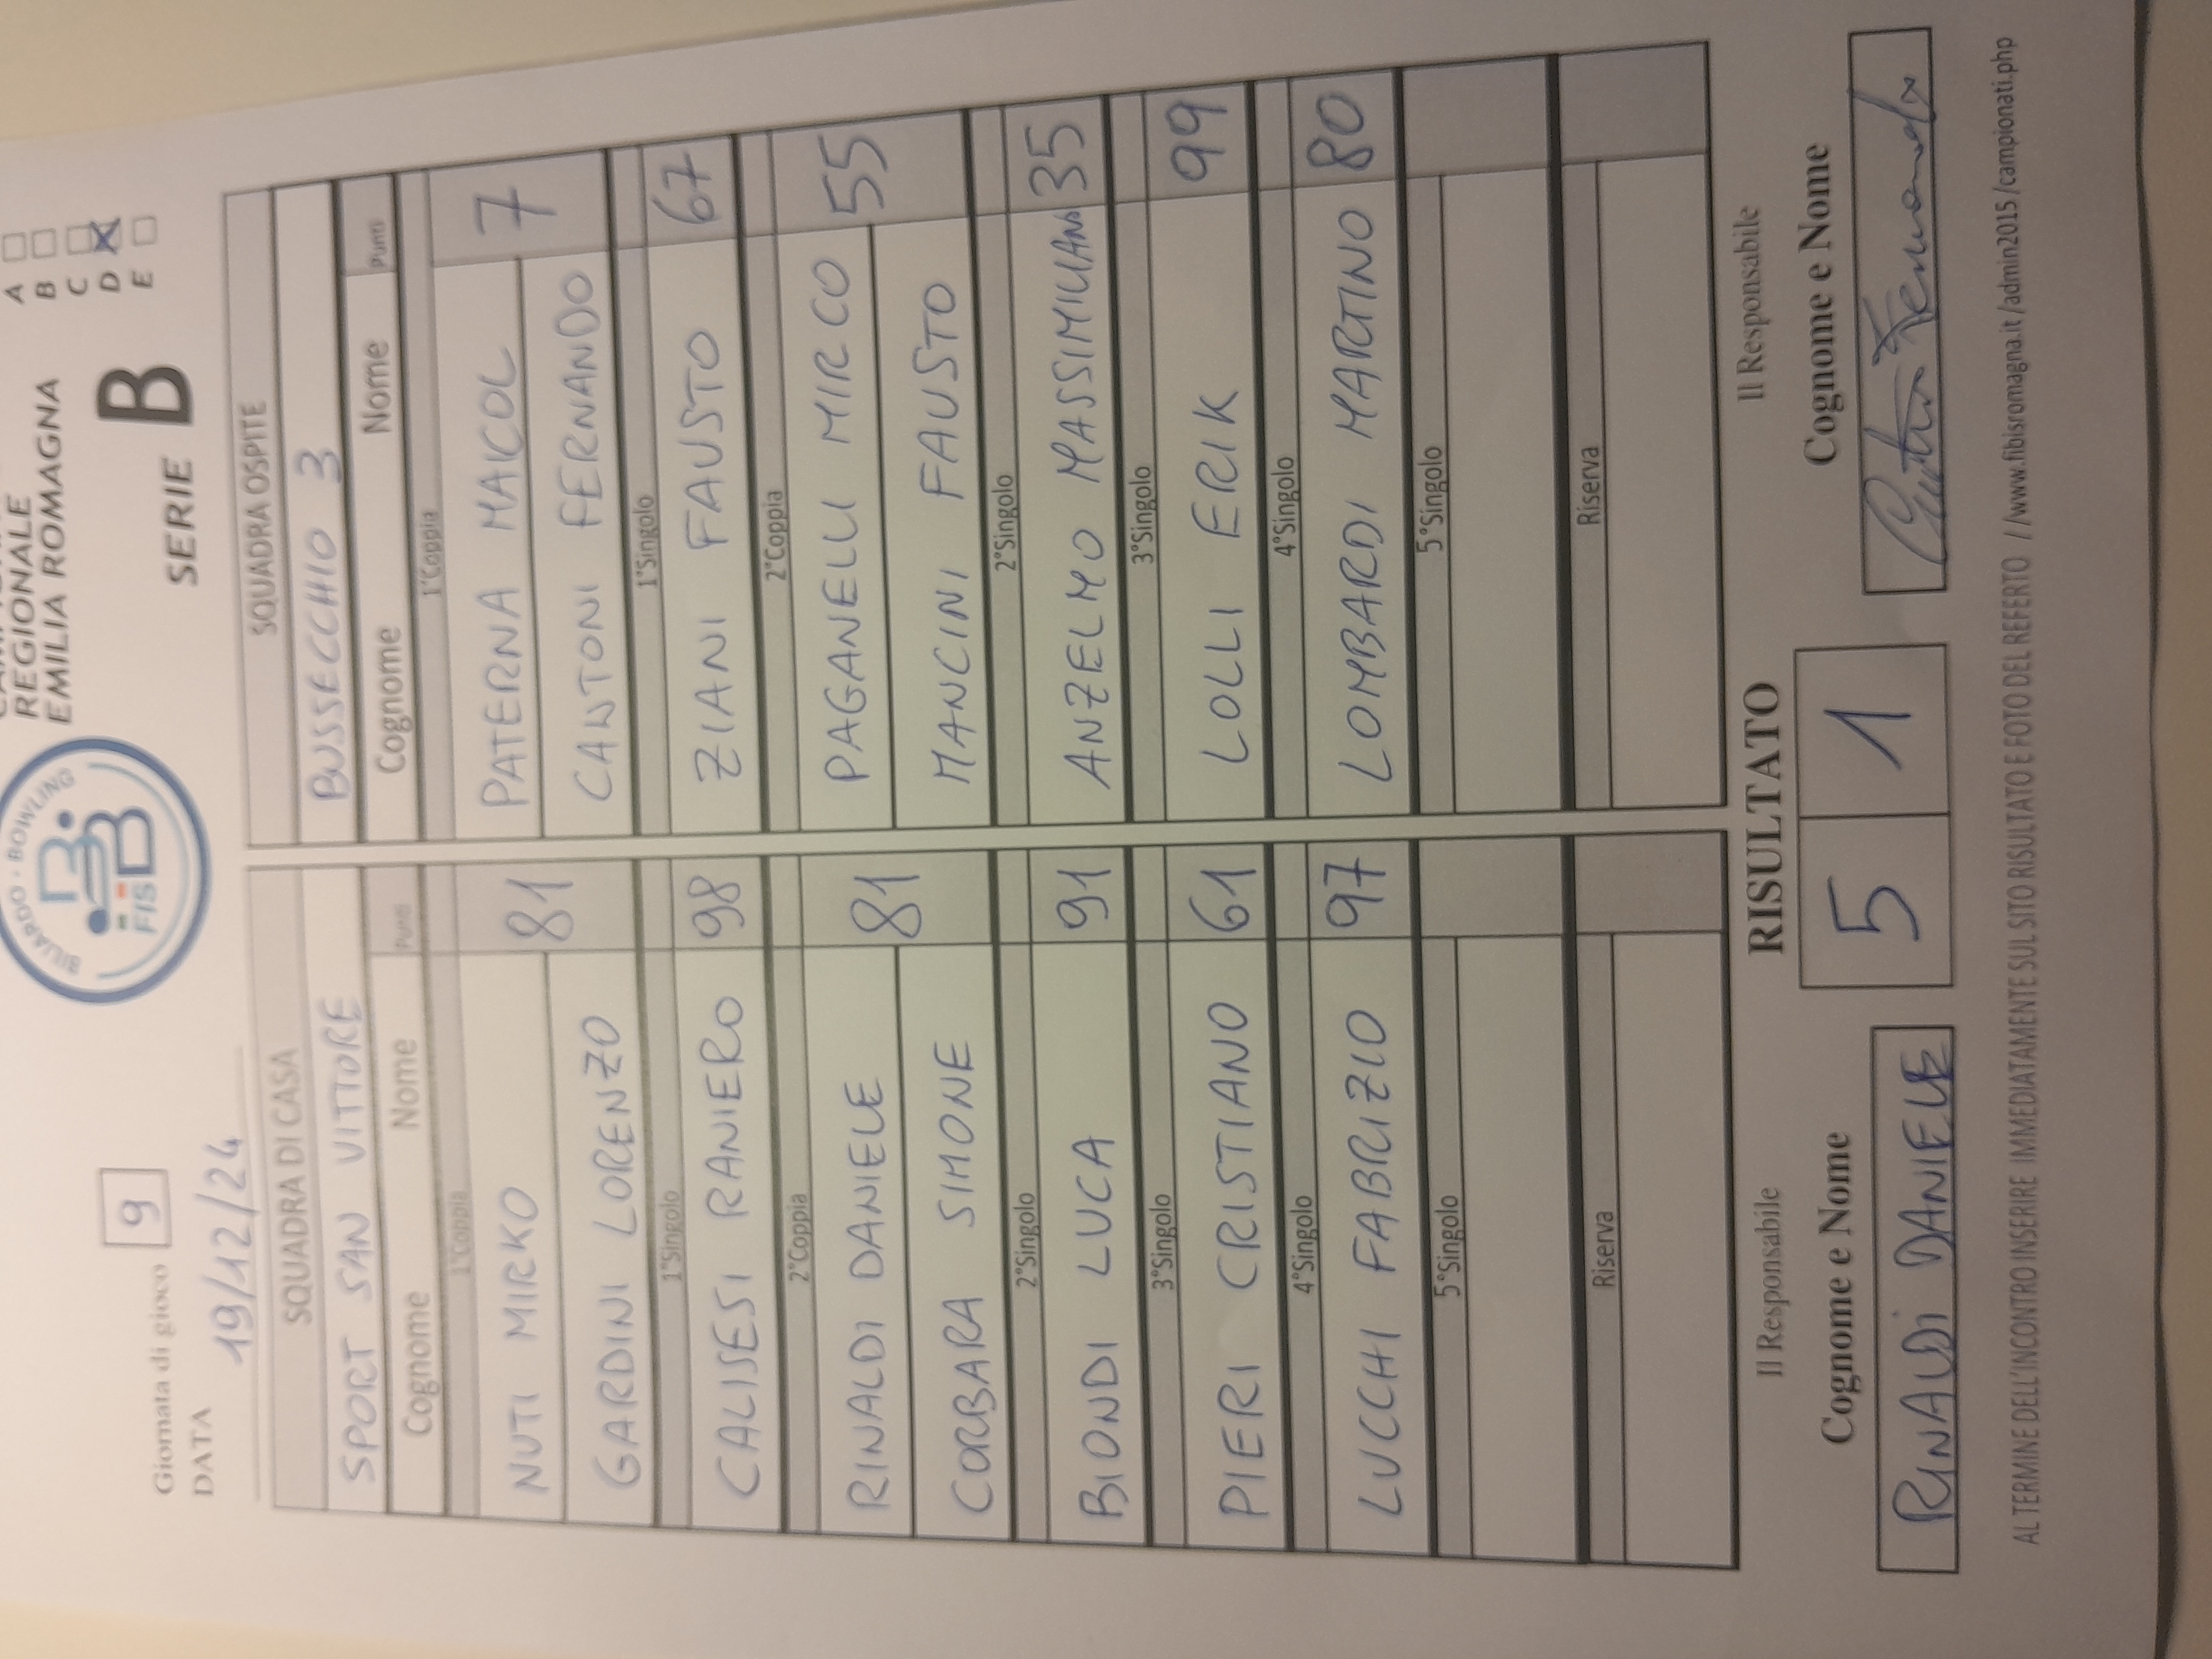 REGIONALE
EMILIA ROMAGNA
BILIARDO - BOWLING
FISBB
SERIE B
A
B
C
D X
E
Giornata di gioco 9
DATA 19/12/24
SQUADRA DI CASA SQUADRA OSPITE
SPORT SAN VITTORE BUSSECCHIO 3
Cognome Nome Punti Cognome Nome Punti
1°Coppia 1°Coppia
NUTI MIRKO 81 PATERNA MAICOL 7
GARDINI LORENZO CANTONI FERNANDO
1°Singolo 1°Singolo
CALISESI RANIERO 98 ZIANI FAUSTO 67
2°Coppia 2°Coppia
RINALDI DANIELE 81 PAGANELLI MIRCO 55
CORBARA SIMONE MANCINI FAUSTO
2°Singolo 2°Singolo
BIONDI LUCA 91 ANZELMO MASSIMILIANO 35
3°Singolo 3°Singolo
PIERI CRISTIANO 61 LOLLI ERIK 99
4°Singolo 4°Singolo
LUCCHI FABRIZIO 97 LOMBARDI MARTINO 80
5°Singolo 5°Singolo
Riserva Riserva
Il Responsabile RISULTATO Il Responsabile
Cognome e Nome 5 1 Cognome e Nome
RINALDI DANIELE Fernando
AL TERMINE DELL'INCONTRO INSERIRE IMMEDIATAMENTE SUL SITO RISULTATO E FOTO DEL REFERTO //www.fibisromagna.it/admin2015/campionati.php